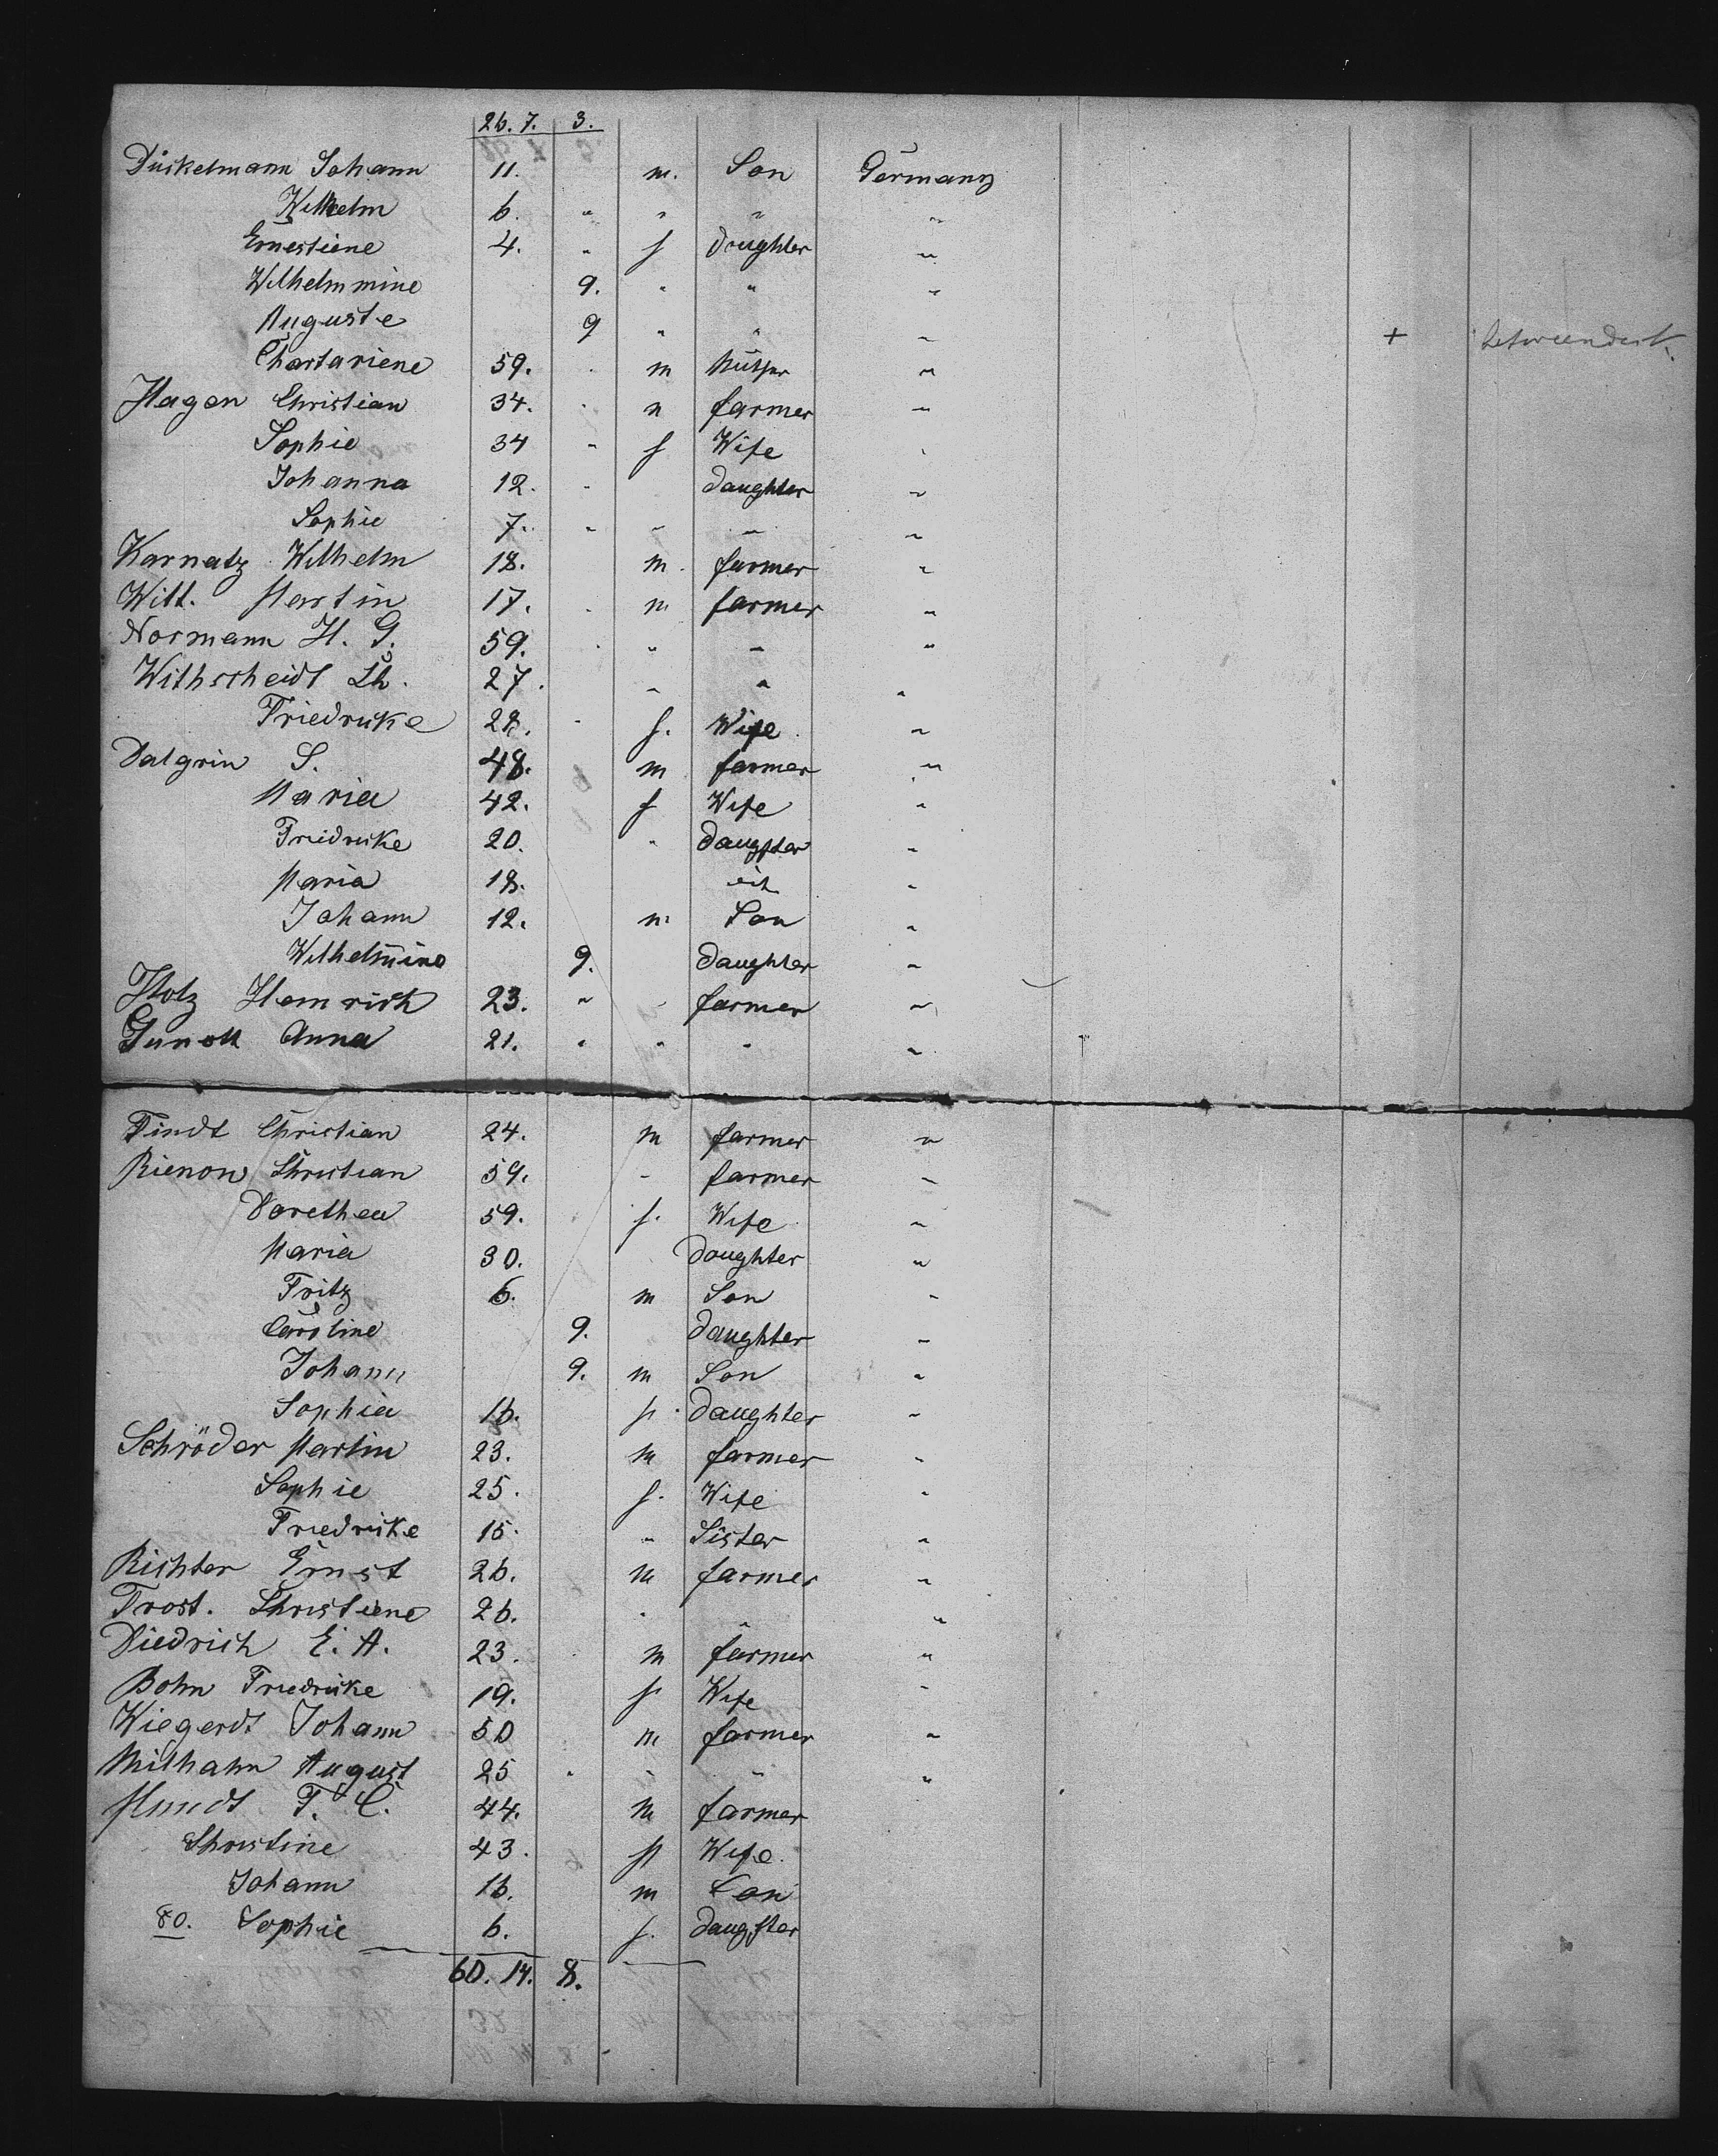 26. 7. 3.
Düskelmann Johann 11. m. Son Germany
Wilhelm 6. " " " "
Ernestiene 4. " f doughter "
Wilhelmmine 9. " " "
Auguste 9 " " " +
Chartariene 59. m "
Hagen Christian 34. m farmer "
Sophie 34 " f Wife "
Johanna 12. " daughter "
Sophie 7. " " " "
Karnatz Wilhelm 18. m. farmer "
Witt. Martin 17. m farmer "
Normann H. G. 59. " " "
Withscheidt Ch. 27. " " "
Friedruke 28. " f. Wife "
Dalgrin S. 48. m farmer "
Maria 42. f Wife "
Friedruke 20. " daugfter "
Maria 18. "
Johann 12. m Son "
Wilhelmine 9. daughter "
Holz Heinrich 23. " " farmer "
Anna 21. " " " "
Tindt Christian 24. m farmer "
Rienow Christian 59. " farmer "
Dorethea 59. f. Wife "
Maria 30. doughter "
Fritz 6. m Son "
Caroline 9. " daughter "
Johann 9. m Son "
Sophia 16. f. daughter "
Schröder Martin 23. m farmer "
Sophie 25. f. Wife "
Friedruke 15. " Sister "
Richter Ernst 26. m farmer "
Trost. Christiene 26. " " "
Diedrich E. A. 23. m farmer "
Bohn Friedrike 19. f Wife "
Wiegerdt Johann 50 m farmer "
Milhahn August 25 " " " "
Mundt F. C. 44. m farmer
Christine 43. f Wife.
Johann 16. m Son
80. Sophie 6. f. daugfter
60. 14. 8.